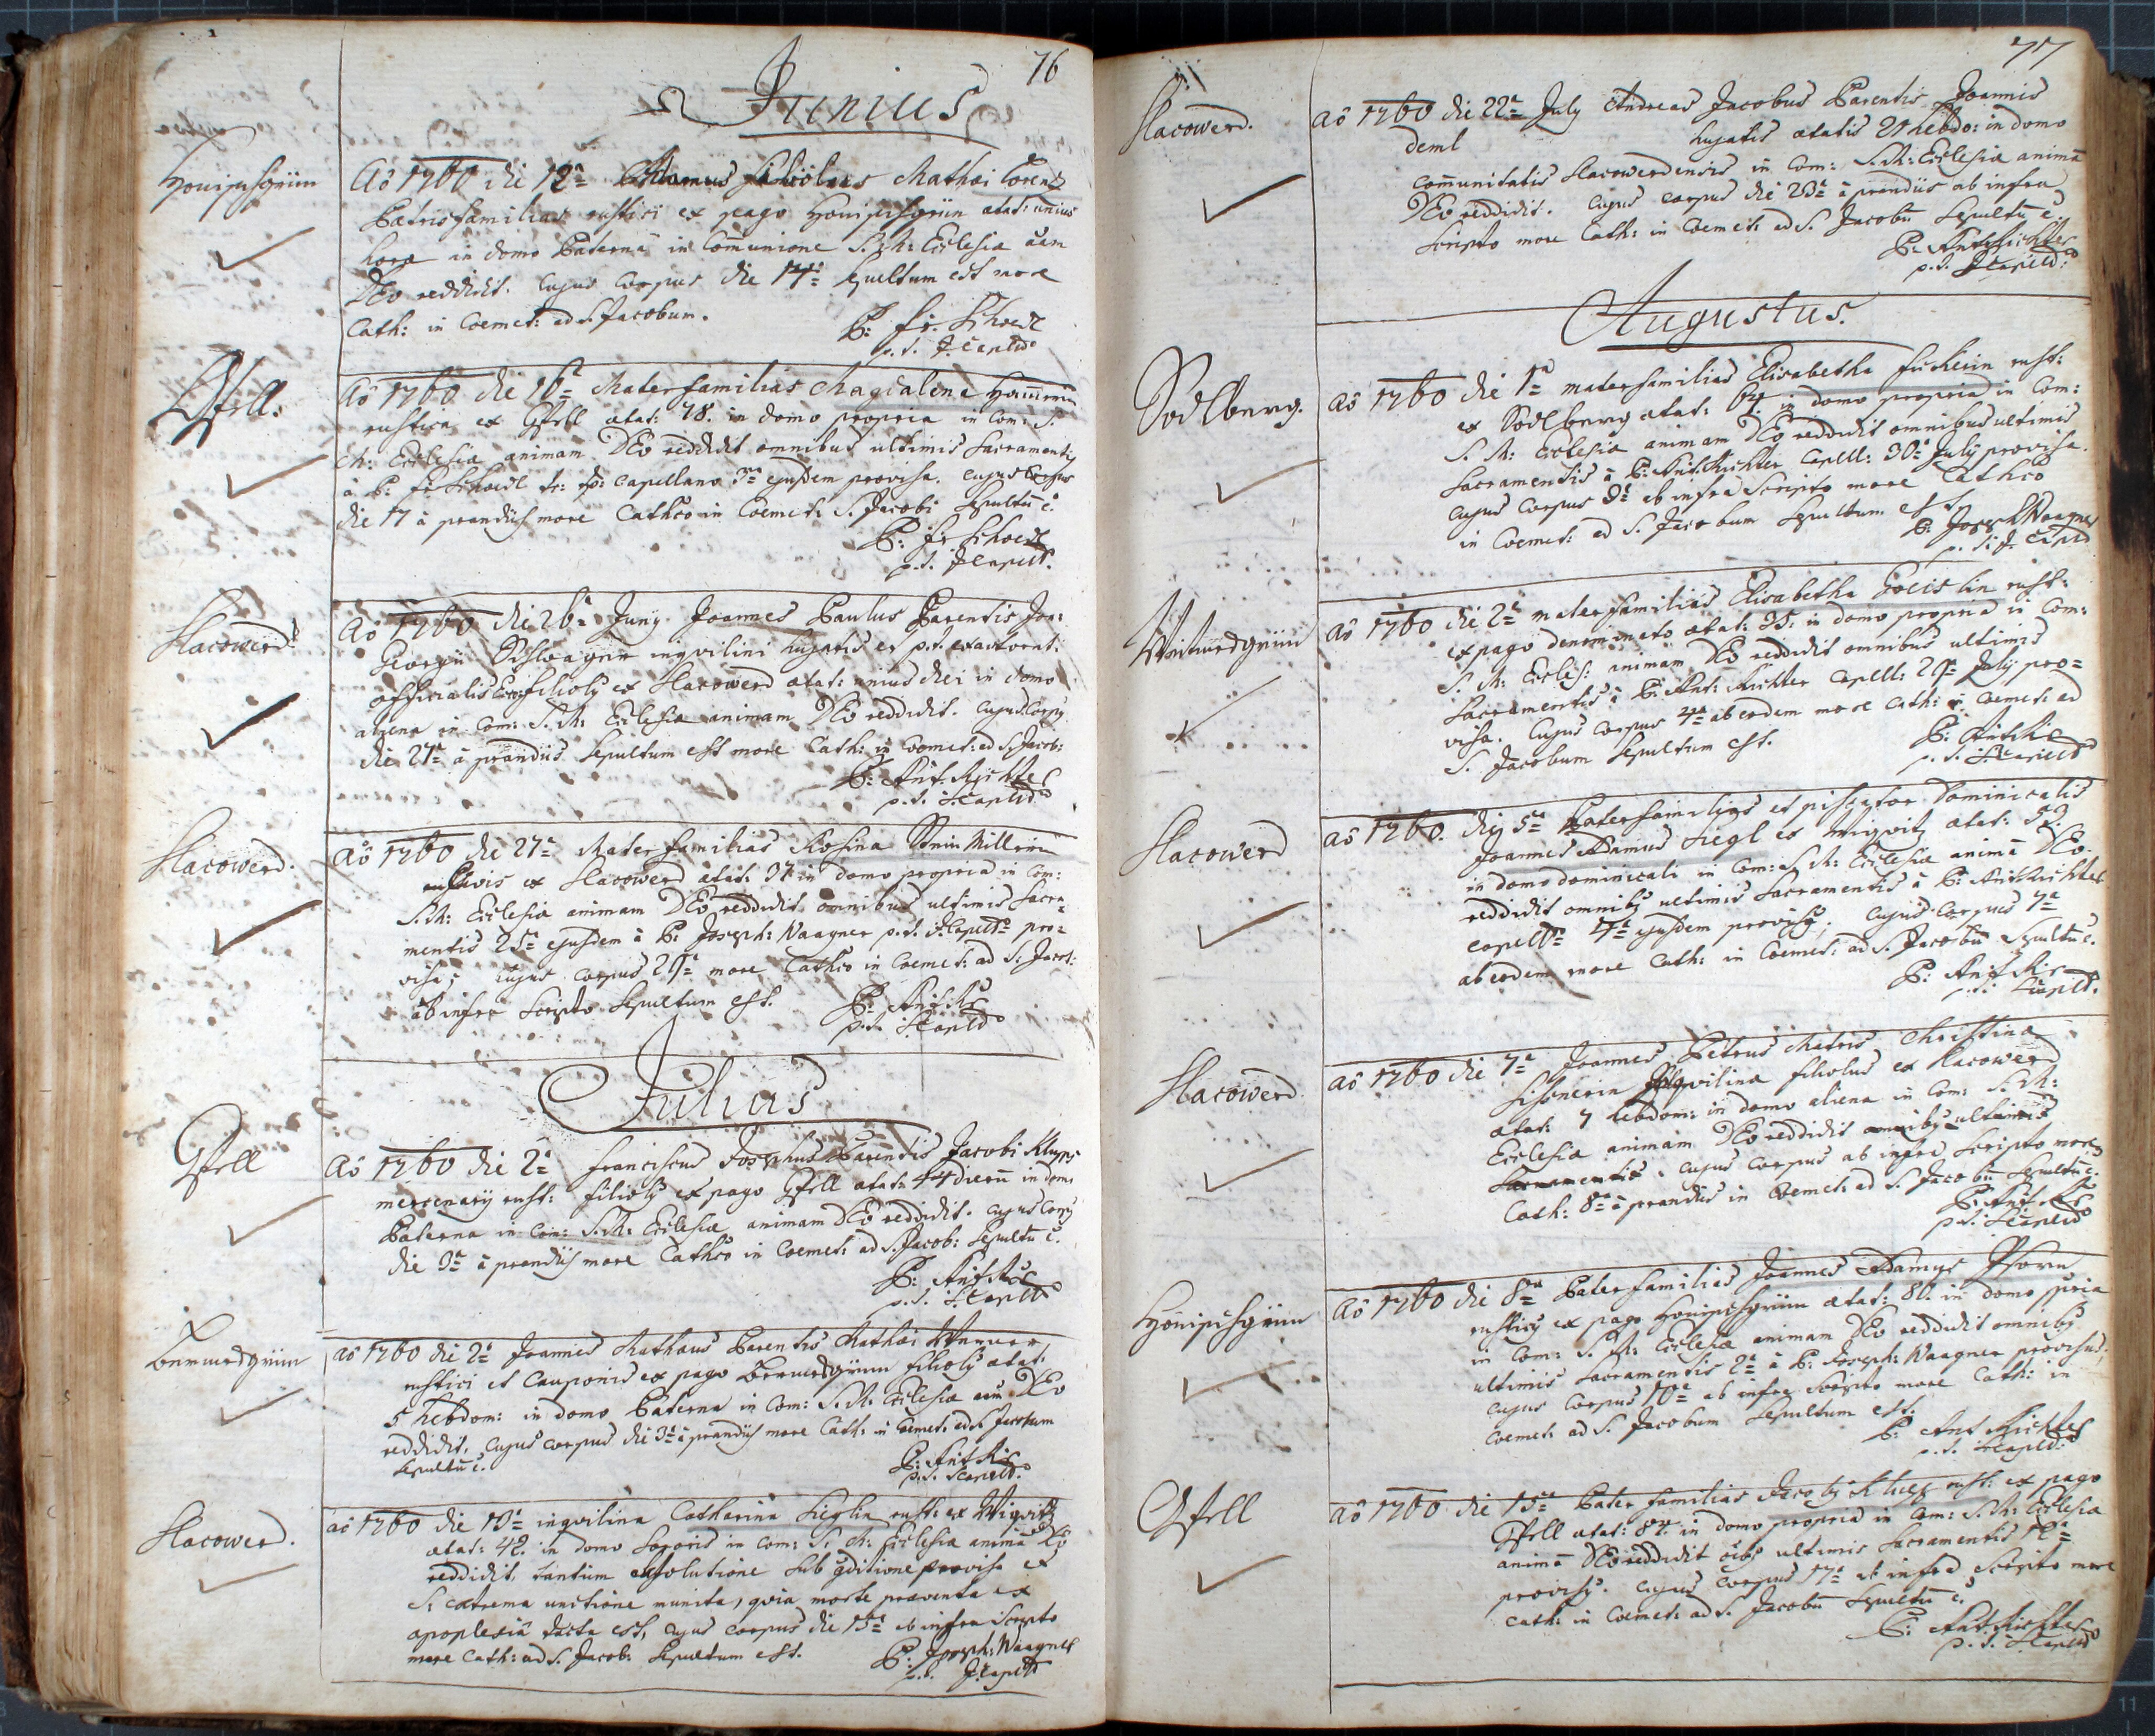 76
Junius
Honipschgrün
Aõ 1760 die 12ª Adamus filiolus Mathæi Lorentz
Patris familias rustici ex pago Honipschgrün ætat: unius
horæ in domo Paterna in Communione S. M: Ecclesiæ aãm
DEo reddidit. Cujus corpus die 14ª sepultum est more
Cath: in Coemet: ad S. Jacobum.
P: Fr. Schoedl
p. t. Capld
Gfell.
Aõ 1760 die 16ª Materfamilias Magdalena
rustica ex Gfell ætat: 78. in domo propria in Com: S.
M: Ecclesiæ animam DEo reddidit omnibus ultimis Sacramentis
à P: Fr Schoedl Capellano 3ª ejusdem provisa. Cujus Corpus
die 17 à prandijs more Cathco in Coemet: S. Jacobi Sepultũ ẽ.
P: Fr Schoedl
p. t. Capell.
Slacowerd
Aõ 1760 die 26ª Juny Joannes Paulus Parentis Joa:
Georgii inqvilini hujatis et p. t.
officialis filiolg ex Slacowerd ætat: unius diei in domo
aliena in Com: S. M: Ecclesiæ animam DEo reddidit. Cujus Corpg
die 27ª à prandiis Sepultum est more Cath: in Coemet: ad S. Jacob:
P: Ant. Richter
p. t. Capld
Slacowerd.
Aõ 1760 die 27ª Mater familias Rosina
ex Slacowerd ætat: 37 in domo propria in Com:
S. M: Ecclesiæ animam DEo reddidit omnibus ultimis Sacra=
mentis 25ª ejusdem à P: Joseph: Waagner p. t. Capell pro=
visa; cujus corpus 29ª more Cathco in Coemet: ad S: Jacob:
ab infra Scripto Sepultum est.
P: Ant Ric
p. t. Capld
Julius
Gfell
Aõ 1760 die 2ª Franciscus Josephus Parentis Jacobi
mercenarij rust: filiolg ex pago Gfell ætat: 44 dierũ in dom:
Paterna in Com: S. M: Ecclesiæ animam DEo reddidit. Cujus Corpg
die 3ª à prandijs more Cathco in Coemet: ad S. Jacob: Sepultũ ẽ.
P: Ant Ric
p. t. Capld
aõ 1760 die 2ª Joannes Mathæus Parentis Mathæi
rustici et Cauponis ex pago filiolg ætat:
5 hebdom: in domo Paterna in Com: S. M: Ecclesiæ aãm DEo
reddidit. Cujus corpus die 3ª à prandijs more Cath: in Coemet: ad S. Jacobum
Sepultũ ẽ.
P: Ant Ric
p. t. Capld.
Slacower.
aõ 1760 die 13ª inqvilina Catharina Sieglin rust: ex Wiqvitz
ætat: 42. in domo Soporis in Com: S. M: Ecclesiæ animã DEo
reddidit, tantum absolutione sub gditione provisa et
S. extrema unctione munita, qvia morte præventa ex
apoplexiâ tacta est, cujus corpus die 15ª ab infra Scripto
more Cath: ad S. Jacob: Sepultum est.
P: Joseph: Waagner
p. t. Capld
77
Slacowerd.
aõ 1760 die 22ª July Andreas Jacobus Parentis Joannis
deml hujatis ætatis 21 hebdo: in domo
communitatis Slacowerdensis in Com: S. M: Ecclesiæ animã
DEo reddidit. Cujus corpus die 23ª à prandiis ab infra
Scripto more Cath: in Coemet: ad S. Jacobũ Sepultũ ẽ.
P: Ant Richter
p. t. Capeld:
Augustus.
Sodlberg.
aõ 1760 die 1ª materfamilias Elisabetha rust:
ex Sodlberg ætat: in domo propria in Com:
S. M: Ecclesiæ animam DEo reddidit omnibus ultimis
Sacramentis à P: Ant. Richter Capell: 30ª July provisa.
Cujus Corpus ab infra Scripto more Cathco
in Coemet: ad S. Jacobum Sepultum est.
P: Joseph Waagner
p. t. Capld
aõ 1760 die 2ª mater familias Elisabetha rust:
ex pago denominato ætat: 35. in domo propria in Com:
S. M: Eccles: animam DEo reddidit omnibus ultimis
Sacramentis à P: Ant: Richter Capell: 29ª July pro=
visa. Cujus corpus 4ª ab eodem more Cath: in Coemet: ad
S. Jacobum Sepultum est.
P: Ant Ric
p. t. Capld
Slacowerd
aõ 1760. die 5ª Paterfamilias et piscator Dominicalis
Joannes Adamus Siegl ex Wiqvitz ætat: 52.
in domo dominicali in Com: S. M: Ecclesiæ animã DEo
reddidit omnibg ultimis Sacramentis à P: Ant Richter
capell 4ª ejusdem provisg, cujus corpus 7ª
ab eodem more Cath: in Coemet: ad S. Jacobũ Sepultũ ẽ.
P: Ant Ric
p. t. Capld.
Slacowerd
aõ 1760 die 7ª Joannes Petrus Matris Christina
inqvilina filiolus ex Slacowerd
ætat: 7 hebdom: in domo aliena in Com: S. M:
Ecclesiæ animam DEo reddidit omnibg ultimis
Sacramentis. Cujus corpus ab infra Scripto more
Cath: 8ª à prandiis in Coemet: ad S. Jacobũ Sepultũ ẽ.
P: Ant Ric
p. t. Capeld
Honipschgrün
aõ 1760 die 8ª Paterfamilias Joannes Adamus
rusticg ex pago Honipschgrün ætat: 80. in domo ppria
in Com: S. M: Ecclesiæ animam DEo reddidit omnibg
ultimis Sacramentis 2ª à P: Joseph: Waagner provisus,
cujus corpus 10ª ab infra Scripto more Cath: in
Coemet: ad S. Jacobum Sepultum est.
P: Ant Richter
p. t. Capld:
Gfell
aõ 1760 die 15ª Pater familias Jacobg rust: ex pago
Gfell ætat: in domo propria in Com: S. M: Ecclesiæ
animã DEo reddidit õibg ultimis Sacramentis 12ª
provisg. Cujus corpus 17ª ab infra Scripto more
Cath: in Coemet: ad S. Jacobũ Sepultũ ẽ.
P: Ant Richter
p. t. Capld
11